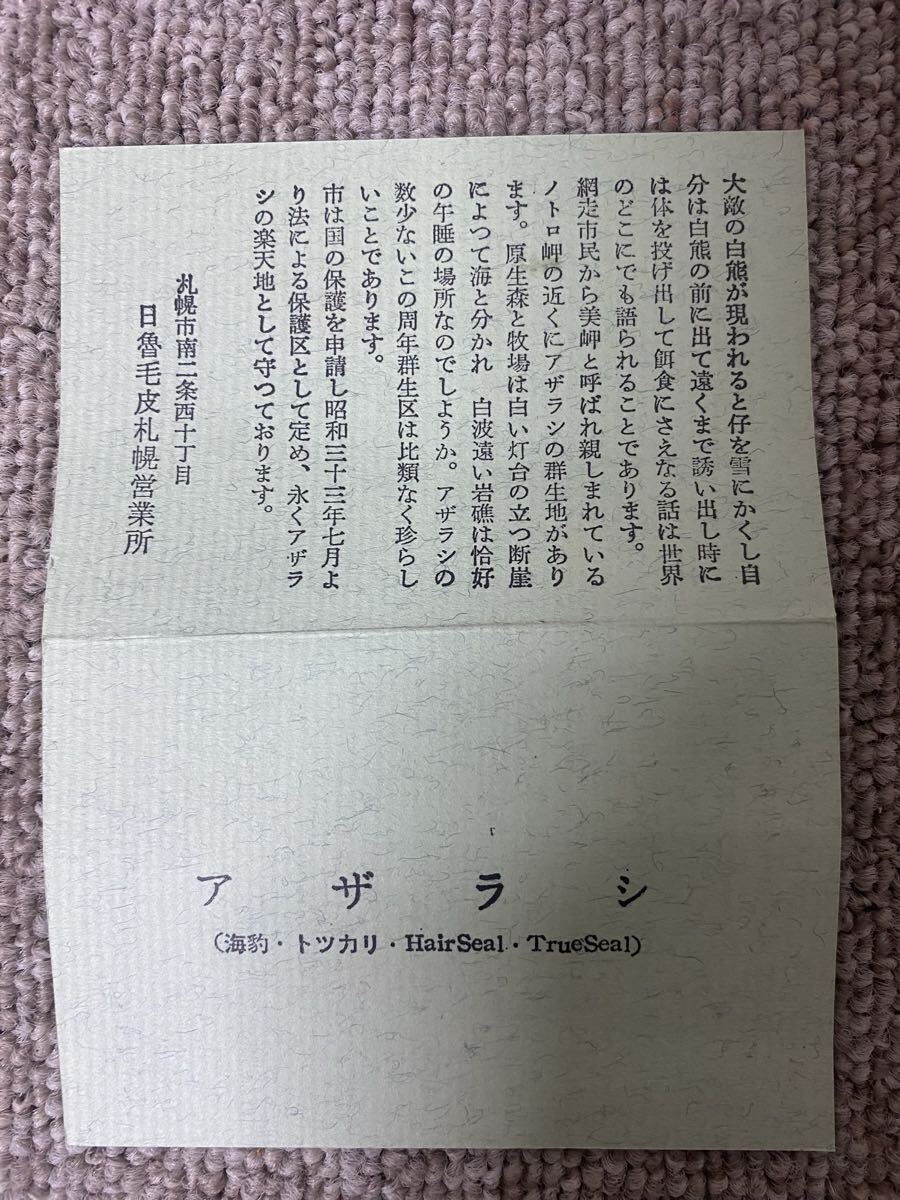 大敵の白熊が現われると仔を雪にかくし自
分は白熊の前に出て遠くまで誘い出し時に
は体を投げ出して餌食にさえなる話は世界
のどこにでも語られることであります。
網走市民から美岬と呼ばれ親しまれている
ノトロ岬の近くにアザラシの群生地があり
ます。原生森と牧場は白い灯台の立つ断崖
によつて海と分かれ 白波遠い岩礁は恰好
の午睡の場所なのでしようか。アザラシの
数少ないこの周年群生区は比類なく珍らし
いことであります。
市は国の保護を申請し昭和三十三年七月よ
り法による保護区として定め、永くアザラ
シの楽天地として守つております。
札幌市南二条西十丁目
日魯毛皮札幌営業所
アザラシ
(海豹・トツカリ・HairSeal・TrueSeal)